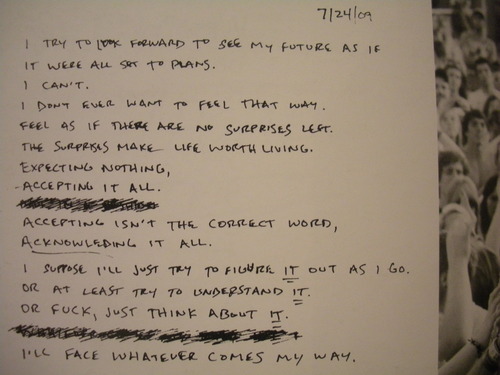 7/24/09
I TRY TO LOOK FORWARD TO SEE MY FUTURE AS IF
IT WERE ALL SET TO PLANS.
I CAN'T.
I DONT EVER WANT TO FEEL THAT WAY.
FEEL AS IF THERE ARE NO SURPRISES LEFT.
THE SURPRISES MAKE LIFE WORTH LIVING.
EXPECTING NOTHING,
-ACCEPTING IT ALL.
ACCEPTING ISN'T THE CORRECT WORD,
ACKNOWLEDING IT ALL.
I SUPPOSE I'LL JUST TRY TO FIGURE IT OUT AS I GO.
OR AT LEAST TRY TO UNDERSTAND IT.
OR FUCK, JUST THINK ABOUT IT.
I'LL FACE WHATEVER COMES MY WAY.